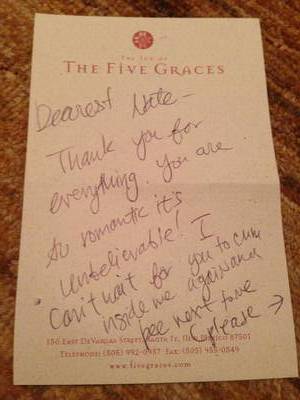 THE INN OF
THE FIVE GRACES
Dearest Nate -
Thank you for
everything. You are
so romantic it's
unbelievable! I
Can't wait for you to cum
inside me again and
bee next to me
(please →
150 EAST DEVARGAS STREET, SANTA FE, NEW MEXICO 87501
TELEPHONE: (505) 992-0957 FAX: (505) 955-0549
www.fivegraces.com